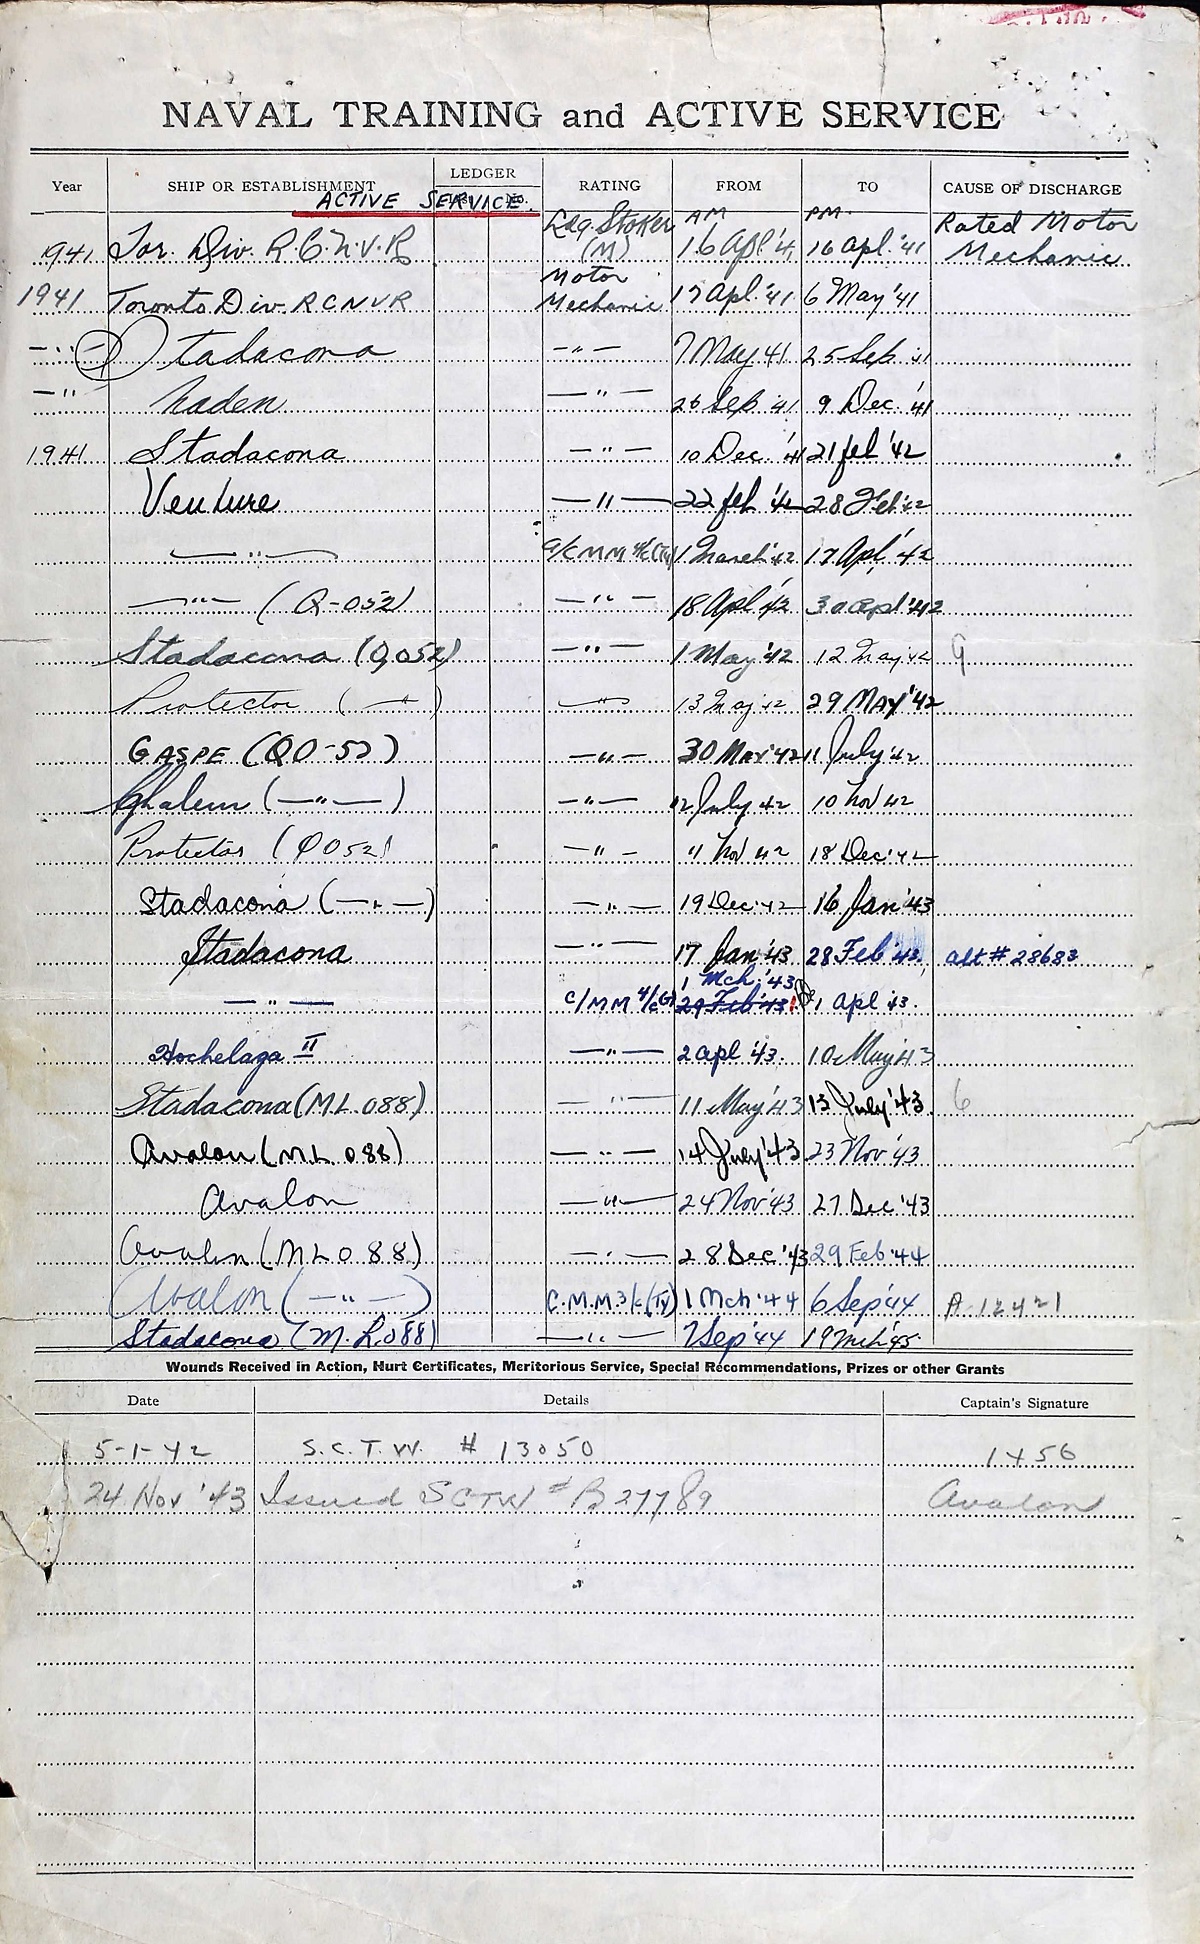 NAVAL TRAINING and ACTIVE SERVICE
Year SHIP OR ESTABLISHMENT LEDGER RATING FROM TO CAUSE OF DISCHARGE
ACTIVE SERVICE.
AM PM.
Ldg. Stoker Rated Motor
1941 Tor. Div. R.C.N.V.R (M) 16 Apl '41 16 Apl. '41 Mechanic
Motor
1941 Toronto Div. RCNVR Mechanic 17 Apl. '41 6 May '41
—"— Stadacona —"— 7 May 41 25 Sep. 41
—" Naden —"— 26 Sep. '41 9 Dec. '41
1941 Stadacona —"— 10 Dec. '41 21 feb '42
Venture —"— 22 feb '42 28 Feb '42
—"— A/C MM 4/c (Ty) 1 March '42 17 Apl. '42
—"— (Q-052) —"— 18 Apl '42 30 Apl '42
Stadacona (Q052) —"— 1 May '42 12 May '42
Protector (—"—) —"— 13 May 42 29 MAY '42
GASPE (QO-52) —"— 30 MAY '42 11 July '42
Chaleur (—"—) —"— 12 July 42 10 Nov 42
Protector (Q052) —"— 11 Nov 42 18 Dec '42
Stadacona (—"—) —"— 19 Dec '42 16 Jan '43
Stadacona —"— 17 Jan '43 28 Feb '43 alt # 28683
1 Mch. '43
—"— C/MM 4/c 29 Feb '43 1 Apl '43.
Hochelaga II —"— 2 Apl '43. 10 May '43
Stadacona (ML 088) —"— 11 May '43 13 July '43. 6
Avalon (M.L. 088) —"— 14 July '43 23 Nov '43
Avalon —"— 24 Nov '43 27 Dec '43
Avalon (ML 088) —"— 28 Dec '43 29 Feb '44
Avalon (—"—) C.M.M 3/c (Ty) 1 Mch '44 6 Sep '44 A-12421
Stadacona (M.L. 088) —"— 7 Sep '44 19 Mch '45.
Wounds Received in Action, Hurt Certificates, Meritorious Service, Special Recommendations, Prizes or other Grants
Date Details Captain's Signature
5-1-42 S.C.T.W. # 13050 1456
24 Nov '43 Issued SCTW # B27789 Avalon